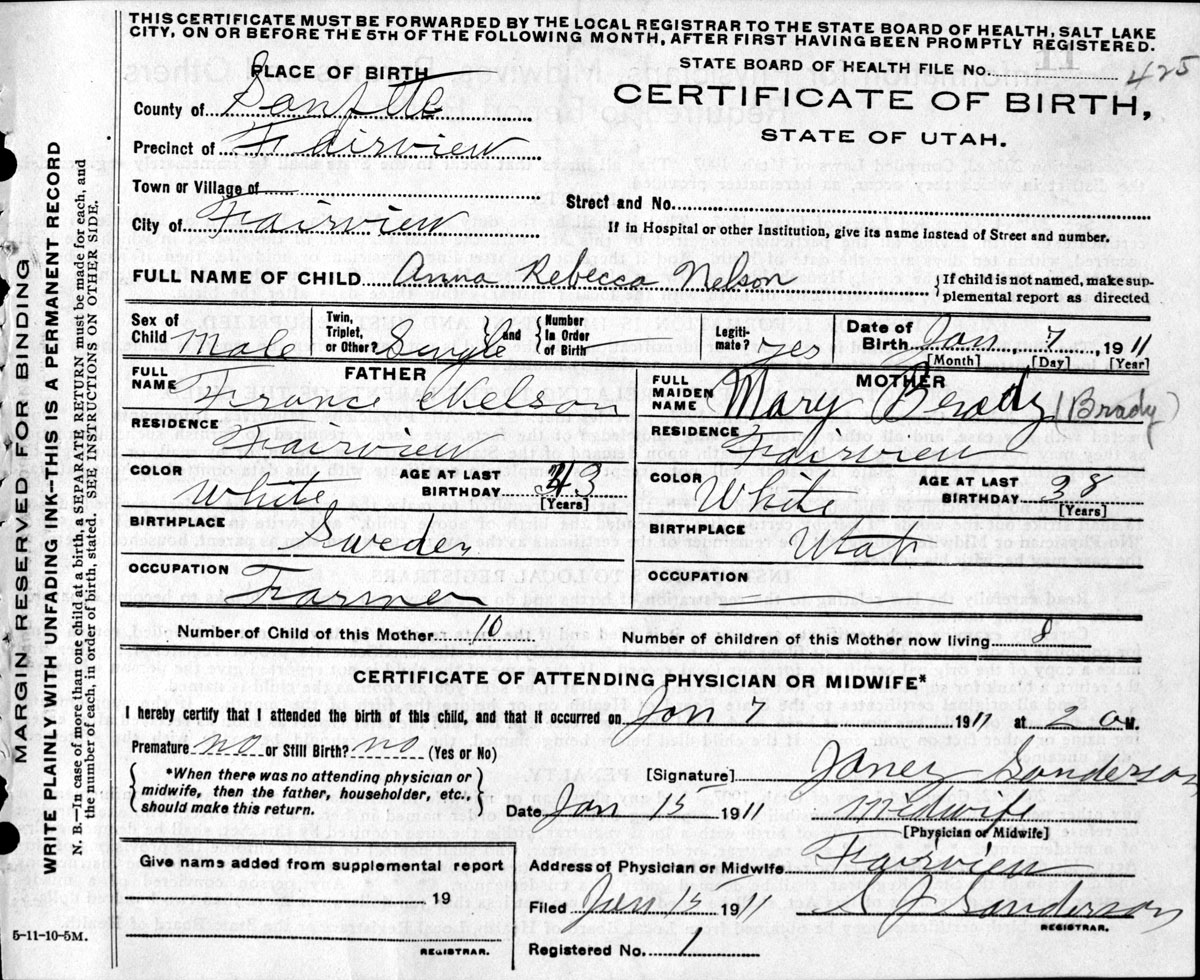 THIS CERTIFICATE MUST BE FORWARDED BY THE LOCAL REGISTRAR TO THE STATE BOARD OF HEALTH, SALT LAKE
CITY, ON OR BEFORE THE 5TH OF THE FOLLOWING MONTH, AFTER FIRST HAVING BEEN PROMPTLY REGISTERED.
STATE BOARD OF HEALTH FILE NO. 425
CERTIFICATE OF BIRTH,
STATE OF UTAH.
PLACE OF BIRTH
County of Sanpete
Precinct of Fairview
Town or Village of
Street and No.
City of Fairview
If in Hospital or other Institution, give its name instead of Street and number.
FULL NAME OF CHILD Anna Rebecca Nelson
If child is not named, make sup-
plemental report as directed
Sex of Child Male
Twin, Triplet, or Other? Single
and Number In Order of Birth
Legiti-mate? yes
Date of Birth Jan, 7, 1911
[Month] [Day] [Year]
FATHER
FULL NAME France Nelson
RESIDENCE Fairview
COLOR White
AGE AT LAST BIRTHDAY 43
[Years]
BIRTHPLACE Sweden
OCCUPATION Farmer
MOTHER
FULL MAIDEN NAME Mary Brady (Brady)
RESIDENCE Fairview
COLOR White
AGE AT LAST BIRTHDAY 38
[Years]
BIRTHPLACE Utah
OCCUPATION
Number of Child of this Mother 10
Number of children of this Mother now living 8
CERTIFICATE OF ATTENDING PHYSICIAN OR MIDWIFE*
I hereby certify that I attended the birth of this child, and that it occurred on Jan 7 1911 at 2 a M.
Premature no or Still Birth? no (Yes or No)
*When there was no attending physician or
midwife, then the father, householder, etc.,
should make this return.
[Signature] Janey Sanderson
Date Jan 15 1911 Midwife
[Physician or Midwife]
Give name added from supplemental report
19
REGISTRAR.
Address of Physician or Midwife Fairview
Filed Jan 15 1911 Sanderson
REGISTRAR.
Registered No. 1
5-11-10-5M.
MARGIN RESERVED FOR BINDING
WRITE PLAINLY WITH UNFADING INK—THIS IS A PERMANENT RECORD
N. B.—In case of more than one child at a birth, a SEPARATE RETURN must be made for each, and
the number of each, in order of birth, stated. SEE INSTRUCTIONS ON OTHER SIDE.